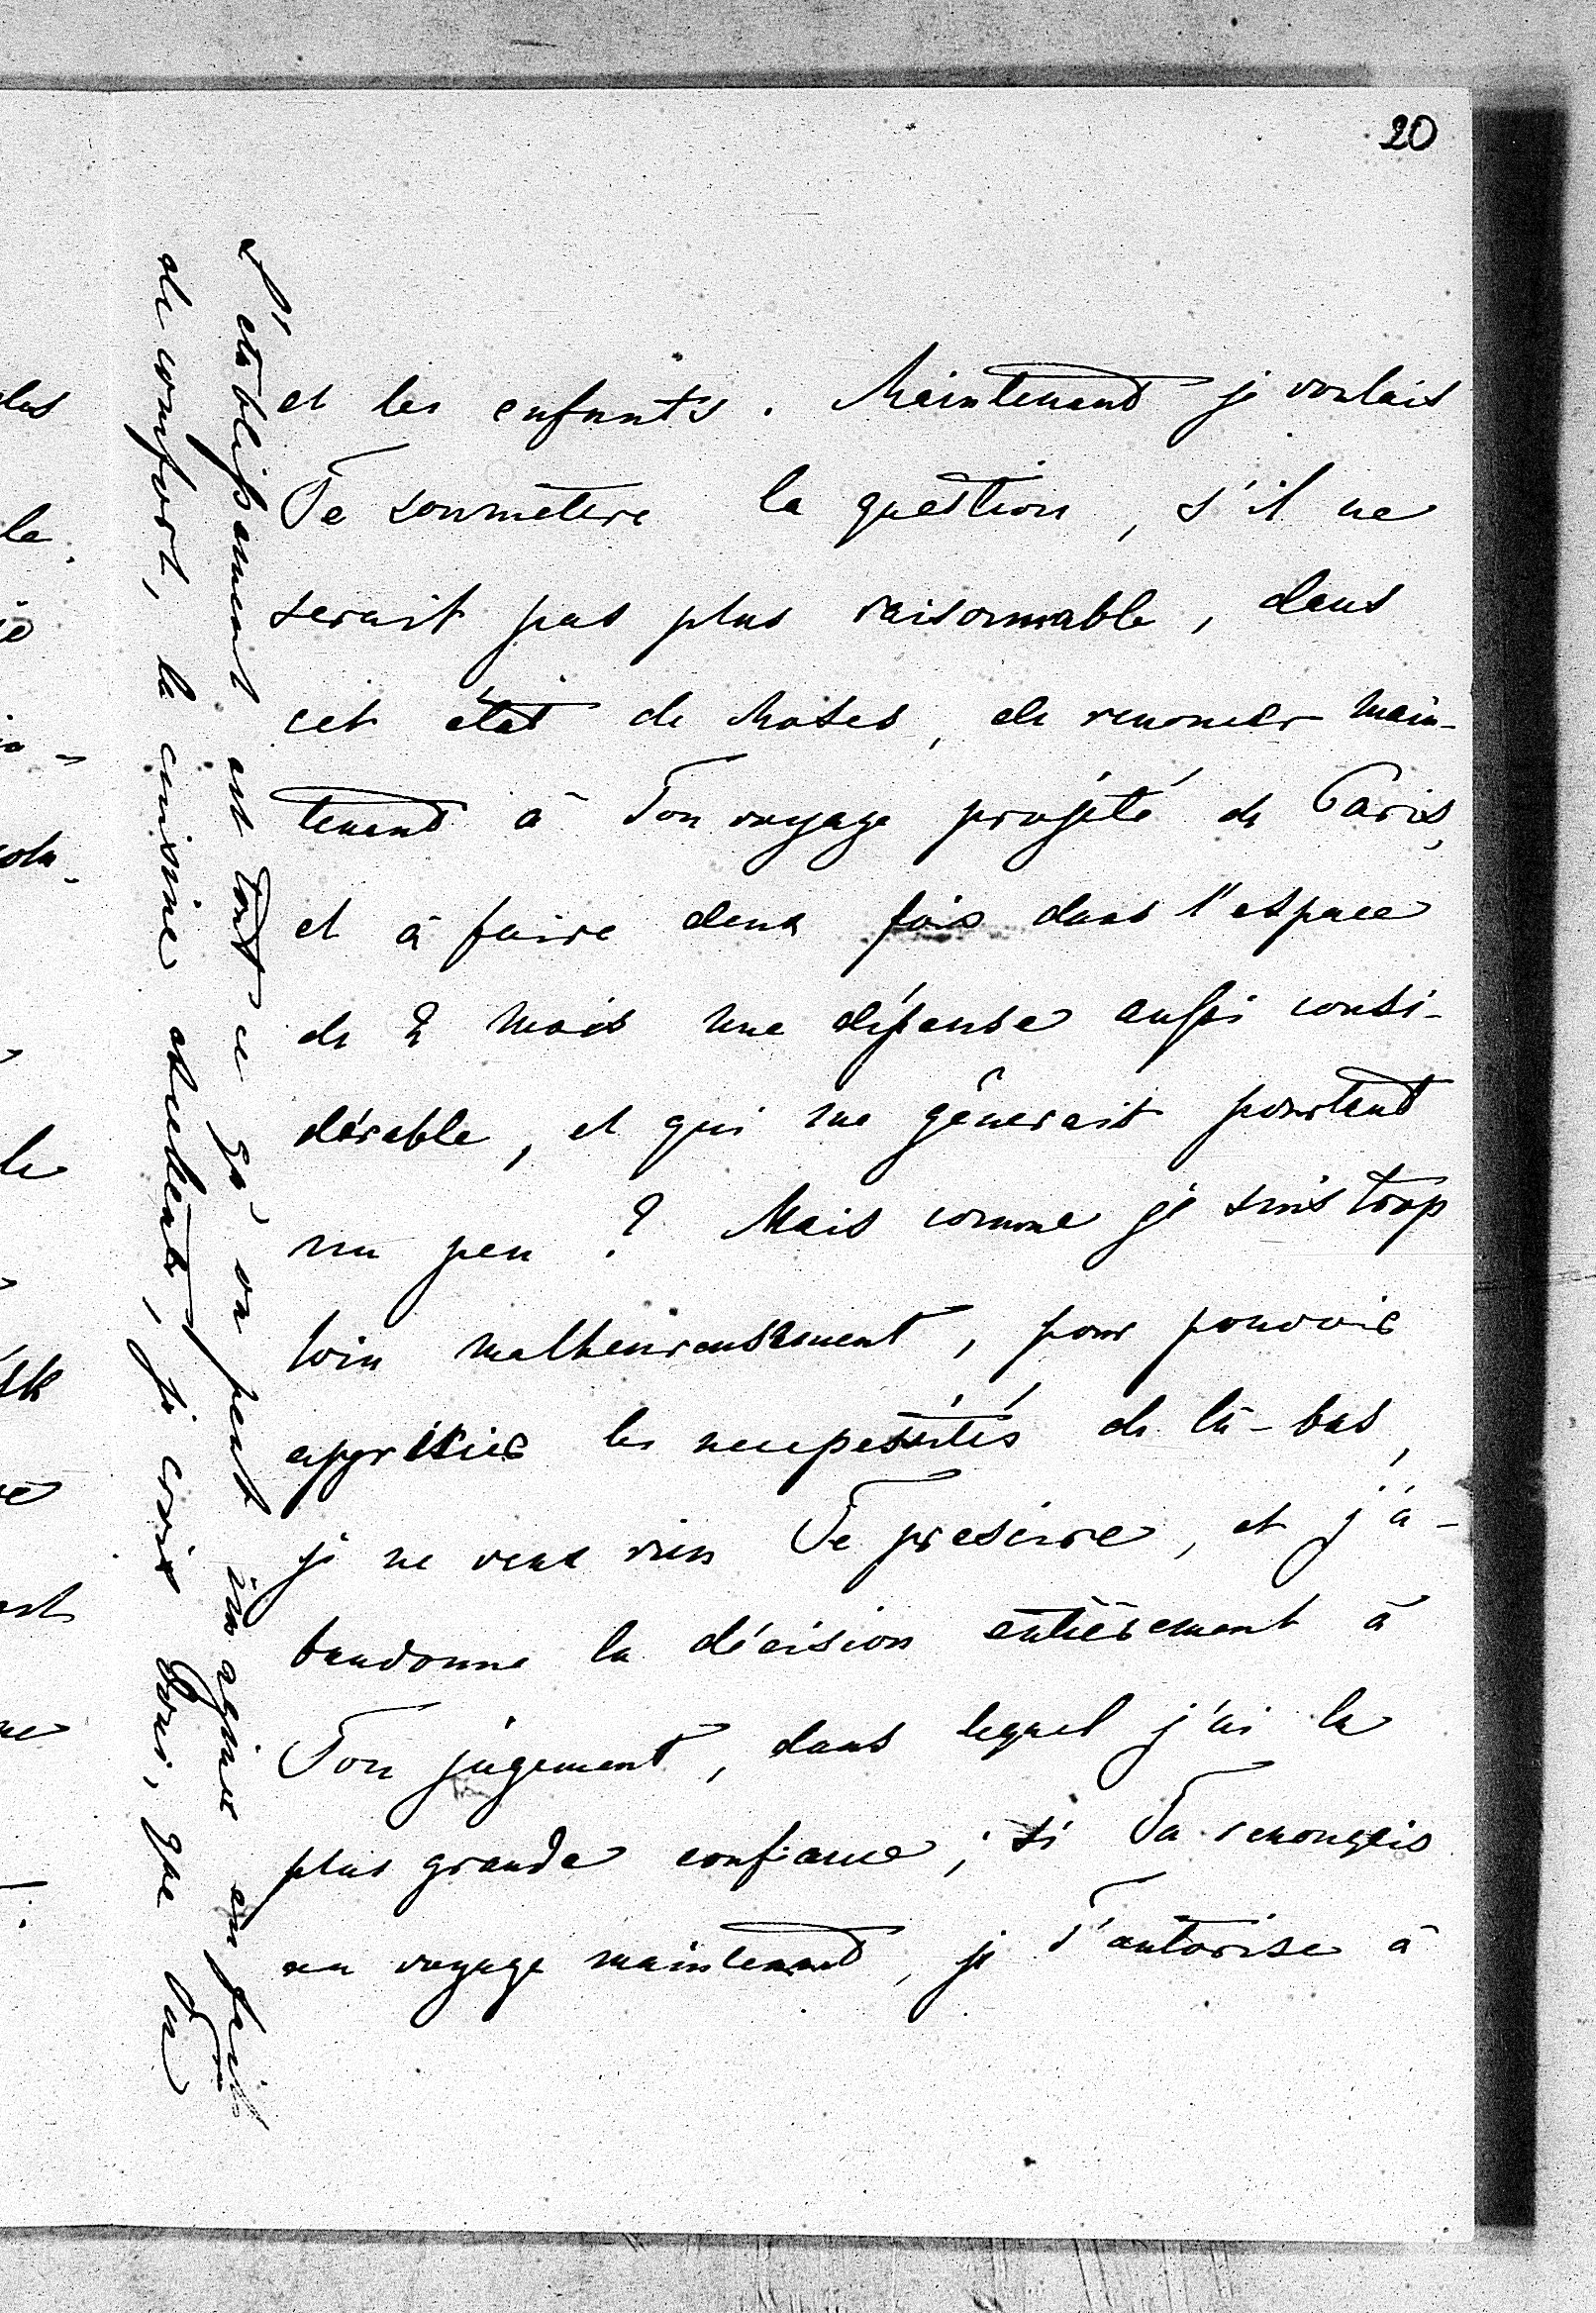 20
et les enfants. Maintenant je voulais
Te soumettre la question, s'il ne
serait pas plus raisonnable, dans
cet état de choses, de renoncer main-
tenant à Ton voyage projeté de Paris,
et à faire deux fois dans l'espace
de 2 mois une dépense aussi consi-
dérable, et qui me gênerait pourtant
un peu? Mais comme je suis trop
loin malheureusement, pour pouvoir
apprécier les necessités de là-bas,
je ne veux rien Te prescire, et j'a-
bandonne la décision entièrement à
Ton jugement, dans lequel j'ai la
plus grande confiance; si Tu renonçais
au voyage maintenant, je T'autorise à
L'établissement est tout ce qu'on peut imaginer en fait
de comfort, la cuisine excellente, je crois que Tu